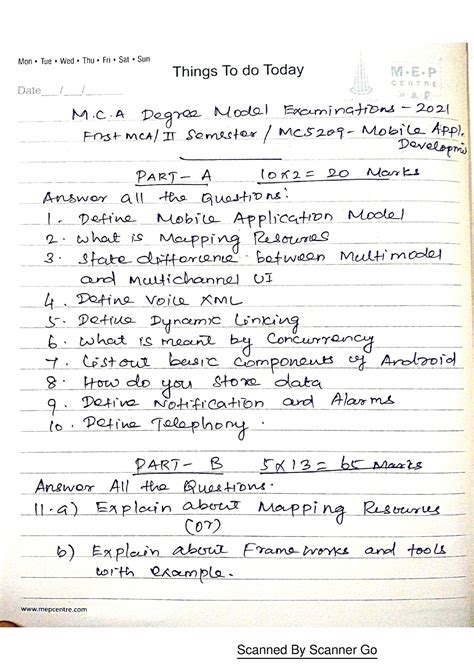 Mon • Tue • Wed • Thu • Fri • Sat • Sun
Things To do Today
M•E•P
CENTRE
Date__/__/__
M.C.A Degree Model Examinations - 2021
First MCA/II Semester/MC5209-Mobile Appl.
Developm
PART- A 10x2= 20 Marks
Answer all the Questions:
1. Define Mobile Application Model
2. what is Mapping Resoures
3. State difference between Multimodel
and Multichannel UI
4. Define Voice XML
5. Define Dynamic Linking
6. what is meant by Concurrency
7. Listout basic Components of Android
8. How do you Store data
9. Define Notification and Alarms
10. Define Telephony.
PART- B 5x13= 65 Marks
Answer All the Questions.
11.a) Explain about Mapping Resoures
(or)
b) Explain about Frameworks and tools
with example.
www.mepcentre.com
Scanned By Scanner Go